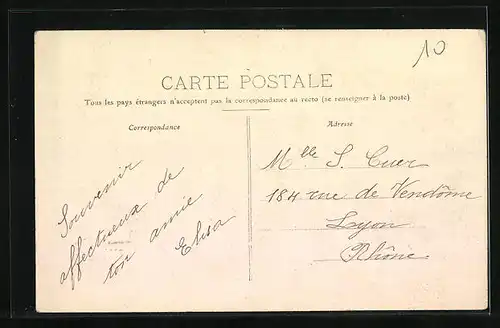 10
CARTE POSTALE
Tous les pays étrangers n'acceptent pas la correspondance au recto (se renseigner à la poste)
Correspondance
Adresse
Souvenir
affectueux de
ton amie
Elisa
Mlle S. Cuer
184 rue de Vendôme
Lyon
Rhône